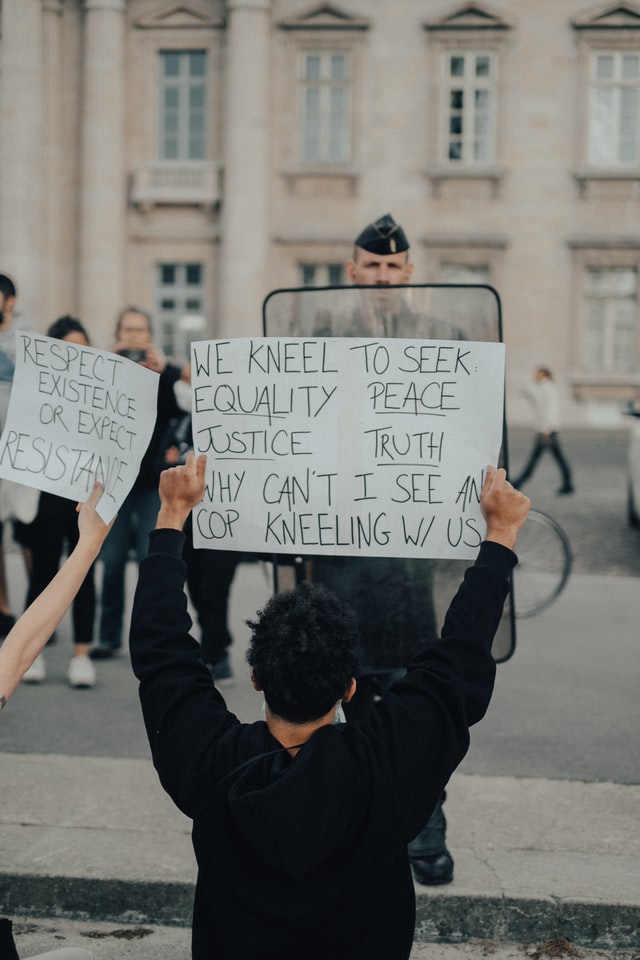 RESPECT
EXISTENCE
OR EXPECT
RESISTANCE
WE KNEEL TO SEEK:
EQUALITY PEACE
JUSTICE TRUTH
WHY CAN'T I SEE AN
COP KNEELING W/ US